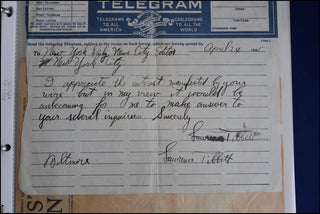 TELEGRAM
TELEGRAMS TO ALL AMERICA
CABLEGRAMS TO ALL THE WORLD
Send the following Telegram, subject to the terms on back hereof, which are hereby agreed to
April 24
To New York Daily News City Editor
New York City
I appreciate the interest manifested by your
wire but in my view it would be
unbecoming for me to make answer to
your several inquiries Sincerely
Lawrence Tibbett
Biltmore
Lawrence Tibbett